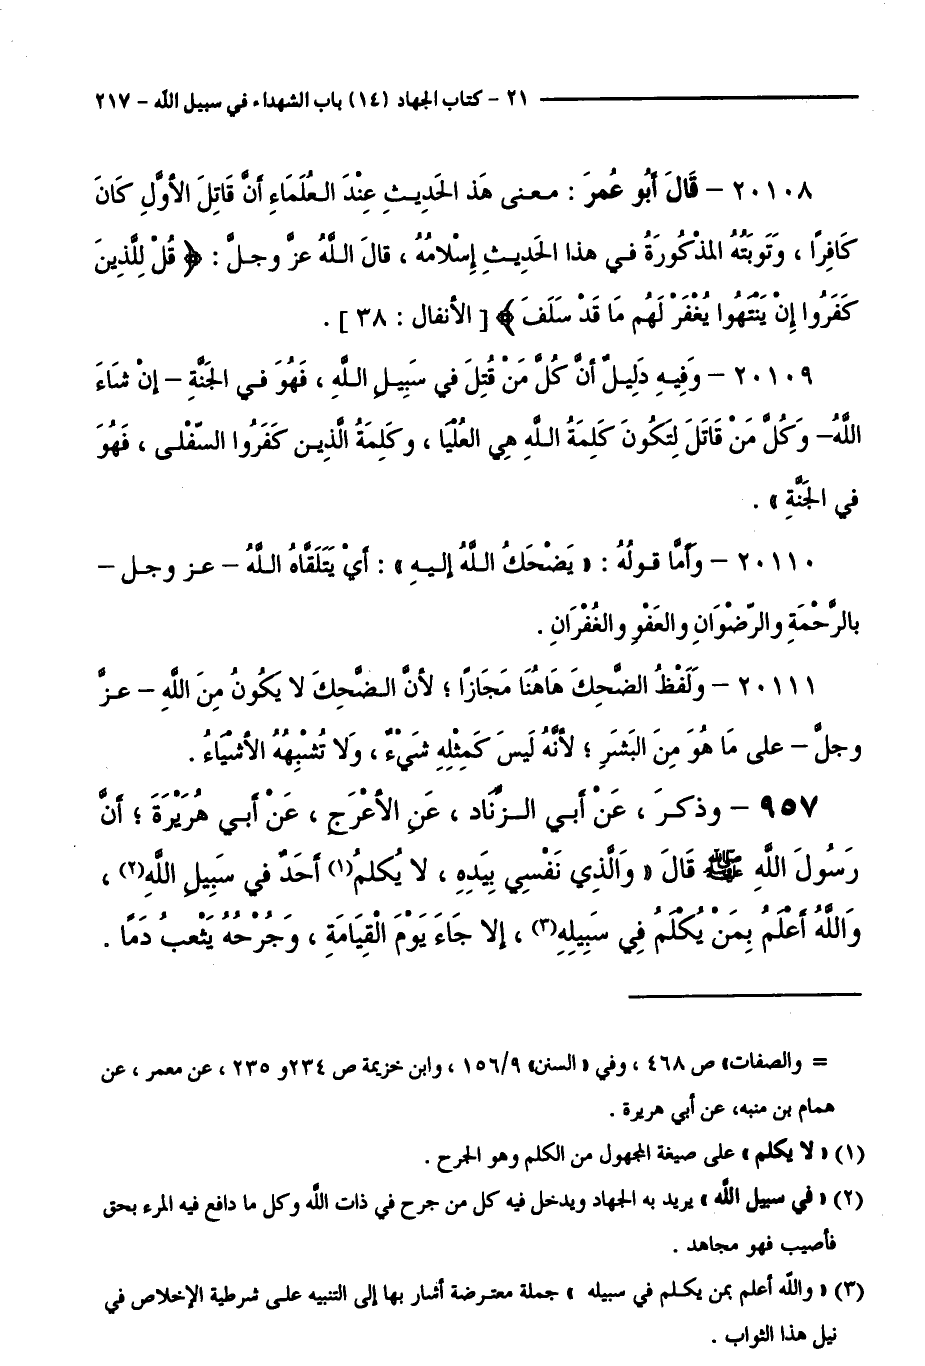 ٢١ - كتاب الجهاد (١٤) باب الشهداء في سبيل الله - ٢١٧
٢٠١٠٨ - قَالَ أَبُو عُمرَ : معنى هَذ الحَدِيثِ عِنْدَ العُلَمَاءِ أنَّ قَاتِلَ الأوَّلِ كَانَ
كَافِرًا ، وَتَوبَتُهُ المَذْكُورَةُ في هذا الحَدِيثِ إِسْلامُهُ ، قالَ اللَّهُ عزَّ وجلَّ : ﴿ قُلْ لِلَّذِينَ
كَفَرُوا إِنْ يَنْتَهُوا يُغْفَرْ لَهُم مَا قَدْ سَلَفَ ﴾ [ الأنفال : ٣٨ ] .
٢٠١٠٩ - وَفِيهِ دَلِيلٌ أنَّ كُلَّ مَنْ قُتِلَ في سَبِيلِ اللَّهِ ، فَهُوَ في الجَنَّةِ - إنْ شاءَ
اللَّهُ - وَكُلَّ مَنْ قَاتَلَ لِتَكُونَ كَلِمَةُ اللَّهِ هِي العُلْيَا ، وكَلِمَةُ الَّذِينِ كَفَرُوا السّفْلى ، فَهُوَ
في الجَنَّةِ » .
٢٠١١٠ - وَأَمَّا قولُهُ : « يَضْحَكُ اللَّهُ إليهِ » : أيْ يَتَلَقَّاهُ اللَّهُ - عز وجل -
بالرَّحْمَةِ والرّضْوَانِ والعَفْوِ والغُفْرَانِ .
٢٠١١١ - وَلَفْظُ الضَّحِكَ هَاهُنَا مَجَازًا ؛ لأنَّ الضَّحِكَ لا يَكُونُ مِنَ اللَّهِ - عزَّ
وجلَّ - على مَا هُوَ مِنَ البَشَرِ ؛ لأنَّهُ لَيسَ كَمِثْلِهِ شَيْءٌ ، وَلا تُشْبِهُهُ الأشْيَاءُ .
٩٥٧ - وذكرَ ، عَنْ أبي الزَّنَاد ، عَنِ الأعْرَجِ ، عَنْ أبي هُرَيْرَةَ ؛ أنَّ
رَسُولَ اللَّهِ ﷺ قَالَ « وَالَّذِي نَفْسِي بِيَدِهِ ، لا يُكلمُ(١) أَحَدٌ في سَبِيلِ اللَّهِ(٢) ،
وَاللَّهُ أَعْلَمُ بِمَنْ يُكْلَمُ فِي سَبِيلِهِ(٣) ، إلا جَاءَ يَوْمَ الْقِيَامَةِ ، وَجُرْحُهُ يَثْعبُ دَمًا .
= والصفات» ص ٤٦٨ ، وفي « السنن» ١٥٦/٩ ، وابن خزيمة ص ٢٣٤و ٢٣٥ ، عن معمر ، عن
همام بن منبه، عن أبي هريرة .
(١) « لا يكلم » على صيغة المجهول من الكلم وهو الجرح .
(٢) « في سبيل الله » يريد به الجهاد ويدخل فيه كل من جرح في ذات الله وكل ما دافع فيه المرء بحق
فأصيب فهو مجاهد .
(٣) « والله أعلم بمن يكلم في سبيله » جملة معترضة أشار بها إلى التنبيه على شرطية الإخلاص في
نيل هذا الثواب .